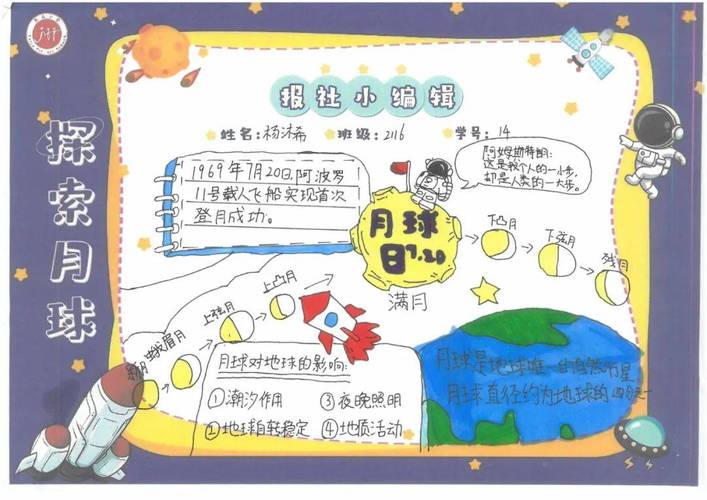 探索月球
报社小编辑
姓名：杨沐希 班级：2116 学号：14
1969年7月20日，阿波罗
11号载人飞船实现首次
登月成功。
阿姆斯特朗：
这是我个人的一小步，
却是人类的一大步。
月球
日7.20
满月
下凸月
下弦月
残月
上凸月
上弦月
蛾眉月
新月
月球对地球的影响：
①潮汐作用 ③夜晚照明
②地球自转稳定 ④地质活动
月球是地球唯一的自然卫星
月球直径约为地球的四分之一